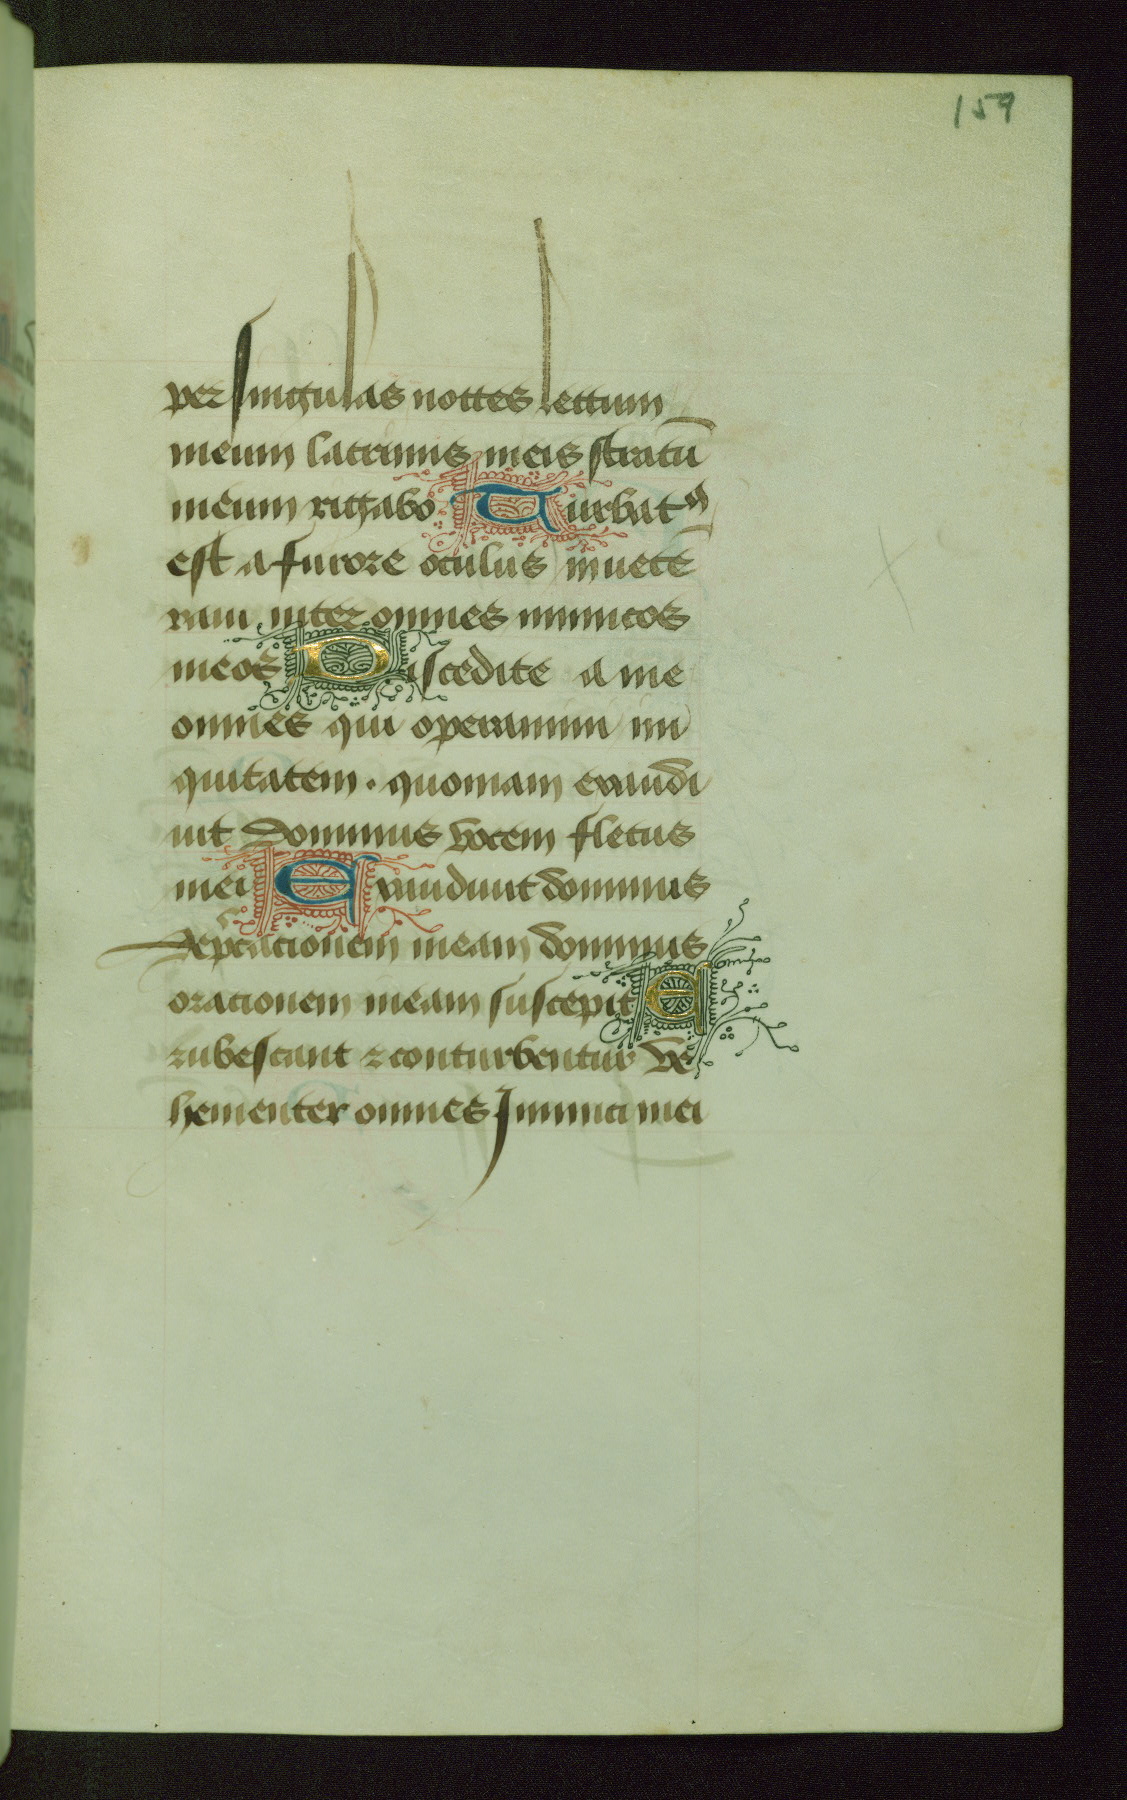 159
per singulas noctes lectum
meum lacrimis meis stratū
meum rigabo Turbatꝰ
est a furore oculus inuete
raui inter omnes inimicos
meos Discedite a me
omnes qui operamini ini
quitatem. quoniam exaudi
uit Dominus vocem fletus
mei Exaudiuit dominus
depcacionem meam dominus
oracionem meam suscepit E
rubescant ⁊ conturbentur ve
hementer omnes Inimici mei